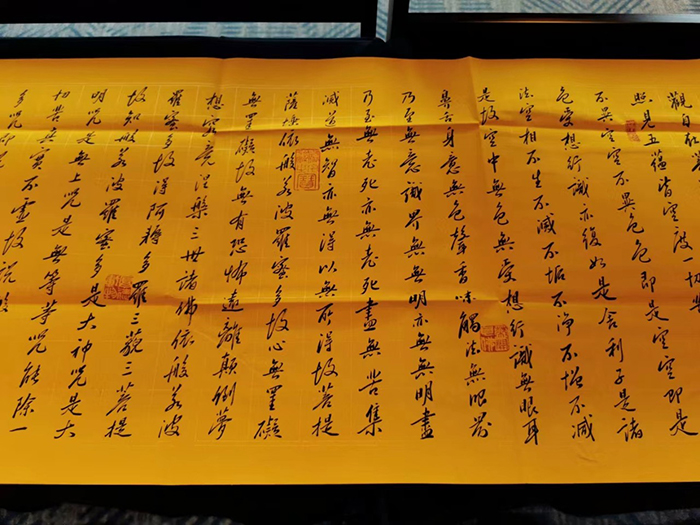 觀自在
照見五蘊皆空度一切
不異空空不異色色即是空空即是
色受想行識亦復如是舍利子是諸
法空相不生不滅不垢不淨不增不減
是故空中無色無受想行識無眼耳
鼻舌身意無色聲香味觸法無眼界
乃至無意識界無無明亦無無明盡
乃至無老死亦無老死盡無苦集
滅道無智亦無得以無所得故菩提
薩埵依般若波羅蜜多故心無罣礙
無罣礙故無有恐怖遠離顛倒夢
想究竟涅槃三世諸佛依般若波
羅蜜多故得阿耨多羅三藐三菩提
故知般若波羅蜜多是大神咒是大
明咒是無上咒是無等等咒能除一
切苦真實不虛故說般
多咒即